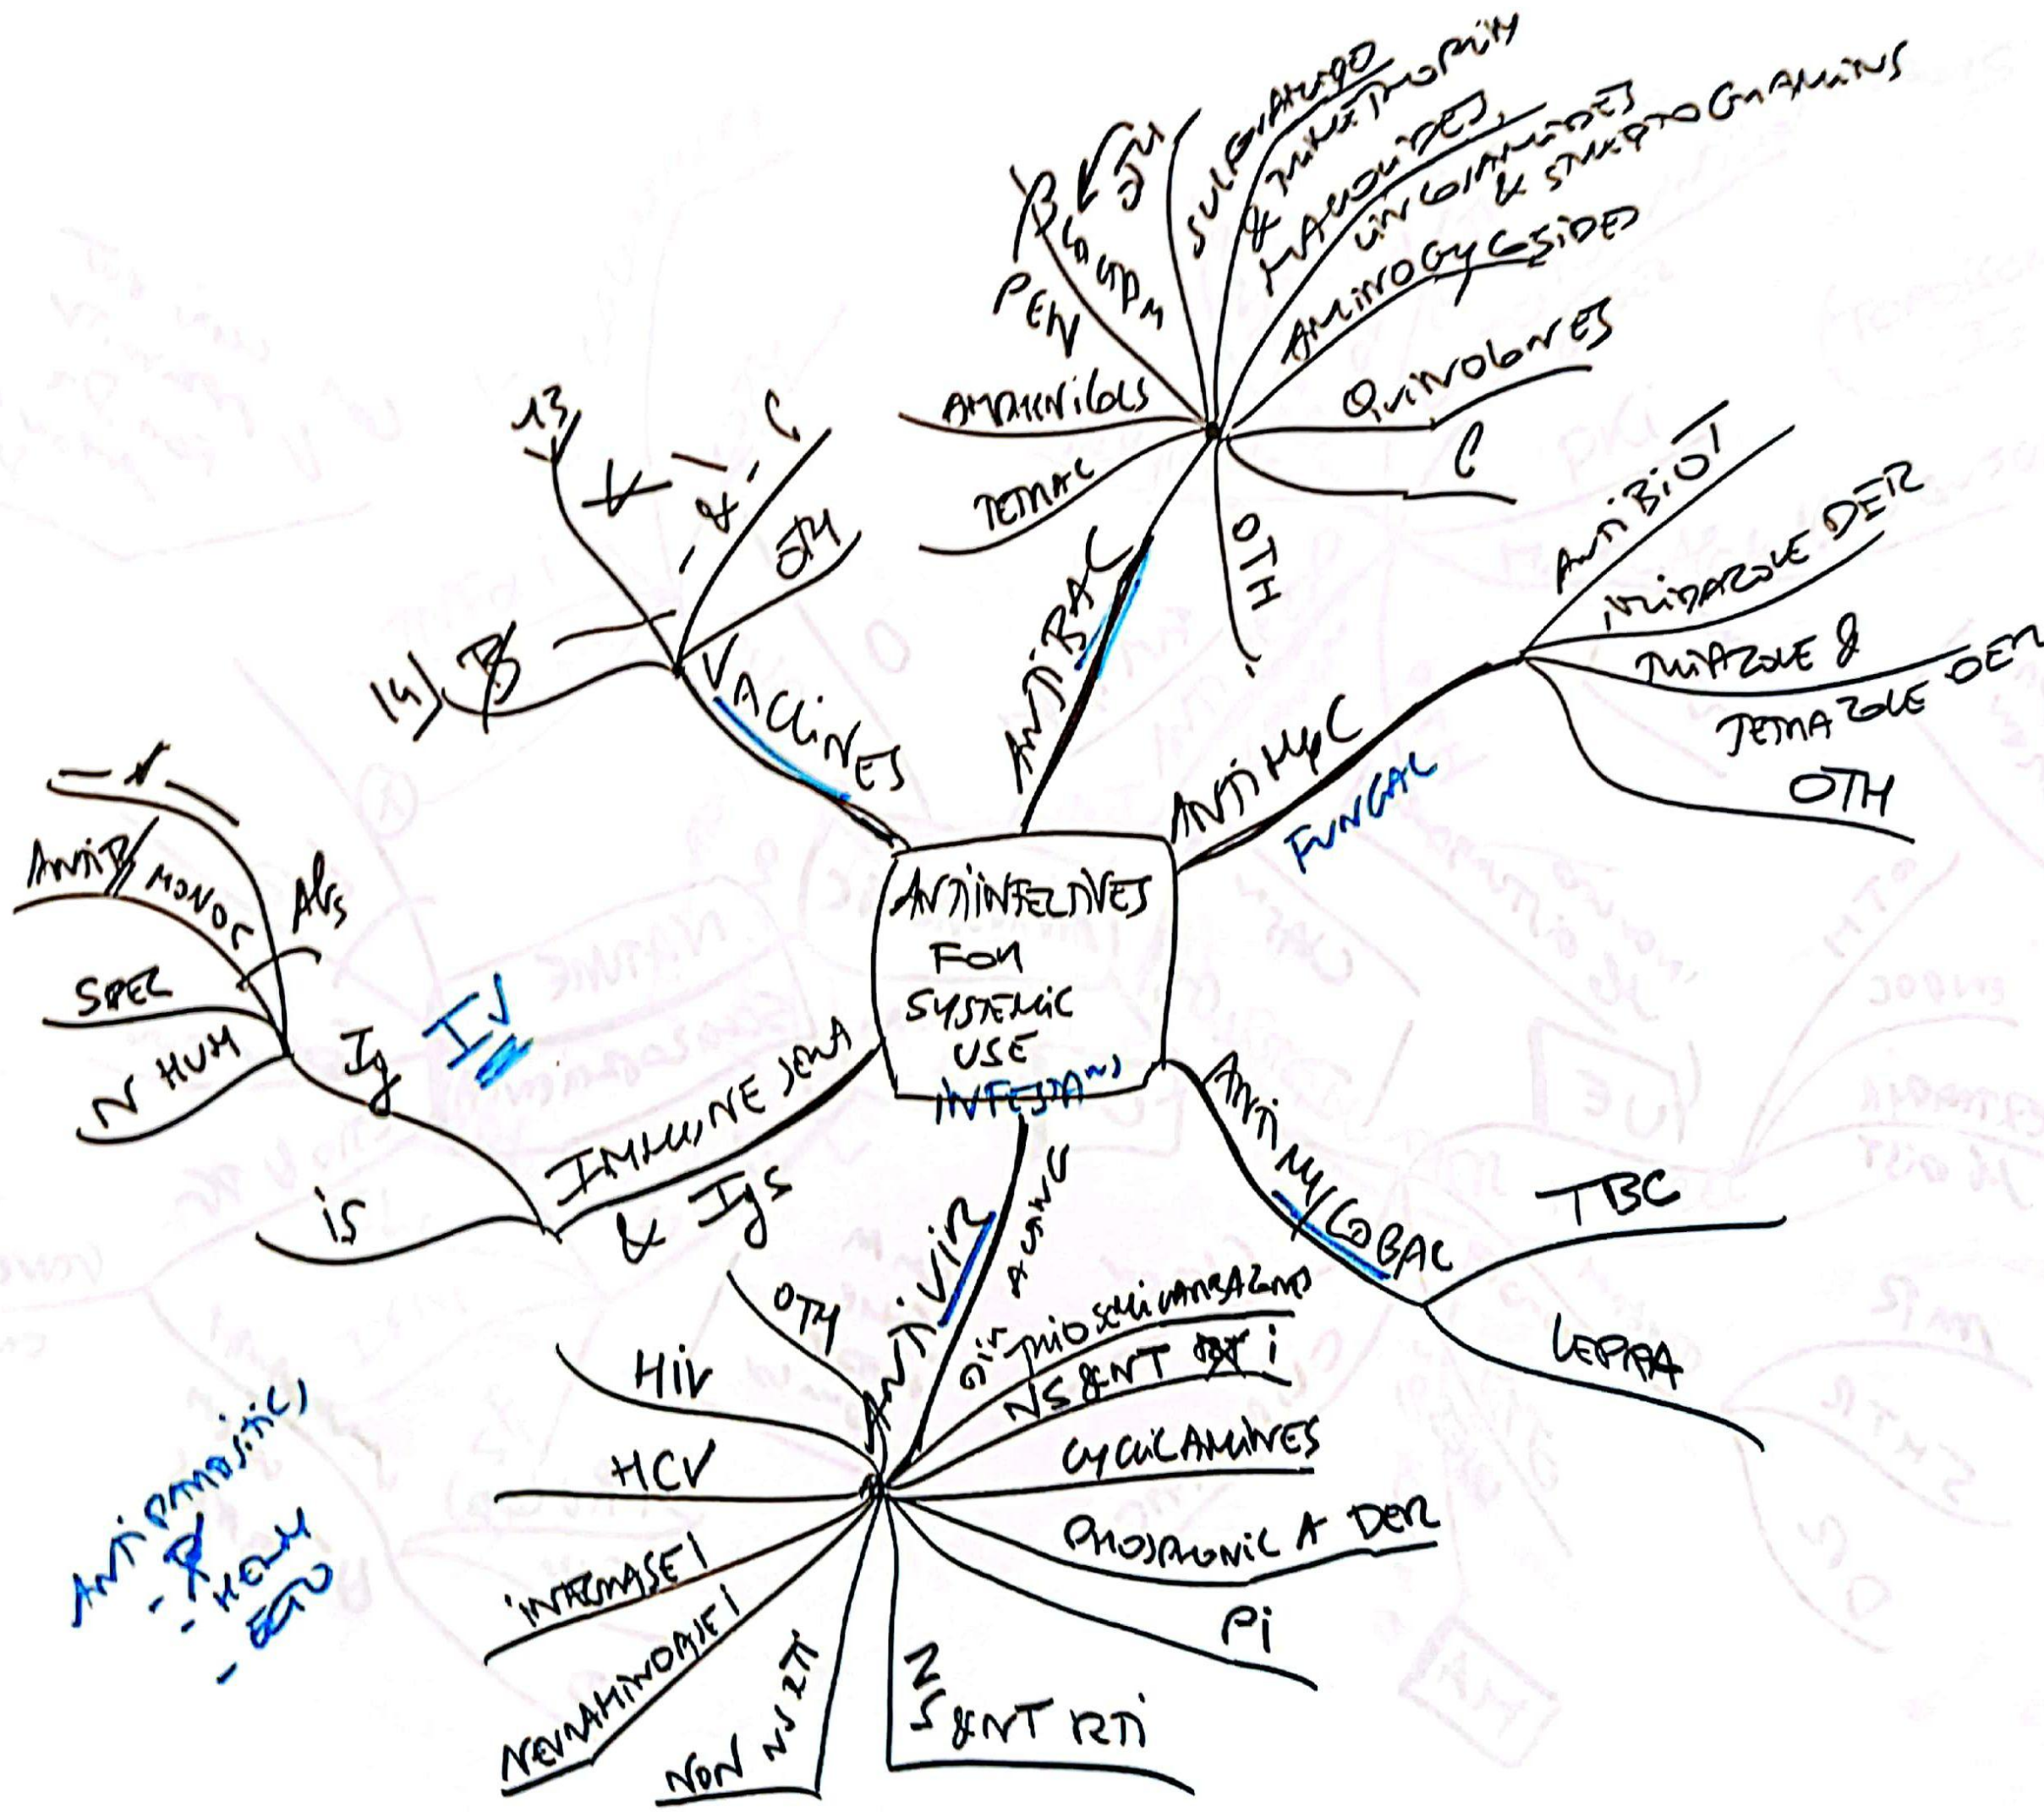 ANTIINFECTIVES
FOR
SYSTEMIC
USE
INFESTANS
ANTIBAC
TETRAC
AMPHENICOLS
PEN
SULFONAMIDO
& TRIMETHOPRIM
MACROLIDES,
LINCOSAMIDES
& STREPTOGRAMINS
AMINOGLYCOSIDES
QUINOLONES
C
OTH
ANTIMYC
FUNGAL
ANTIBIOT
IMIDAZOLE DER
TRIAZOLE &
TETRAZOLE DER
OTH
ANTIMYCOBAC
TBC
LEPRA
ANTIVIR
DIR
THIOSEMICARBAZONES
NS & NT i
CYCLIC AMINES
PHOSPHONIC A DER
Pi
NS & NT RTi
NON NS RTi
NEURAMINIDASE I
INTEGRASE I
HCV
HIV
OTH
IMMUNE SERA
& Igs
is
Ig
IV
N HUM
SPEC
ANTIB MONOC
Abs
- V -
VACCINES
B
V
- & - C
OTH
ANTIPARASITICS
- HELM
- ECTO